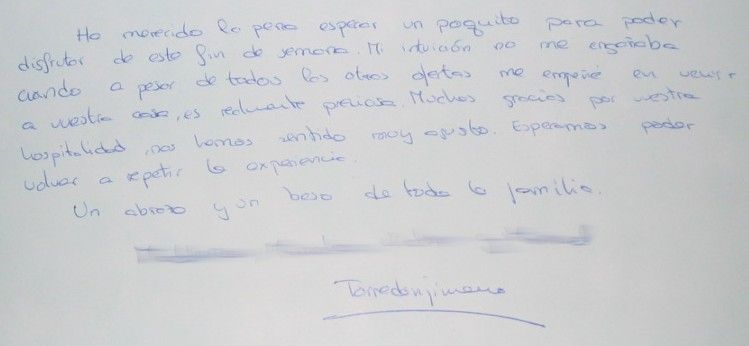 Ha merecido la pena esperar un poquito para poder
disfrutar de este fin de semana. Mi intuición no me engañaba
cuando a pesar de todas las otras ofertas me empeñé en venir
a vuestra casa, es realmente preciosa. Muchas gracias por vuestra
hospitalidad, nos hemos sentido muy agusto. Esperamos poder
volver a repetir la experiencia.
Un abrazo y un beso de toda la familia.
Torredonjimeno